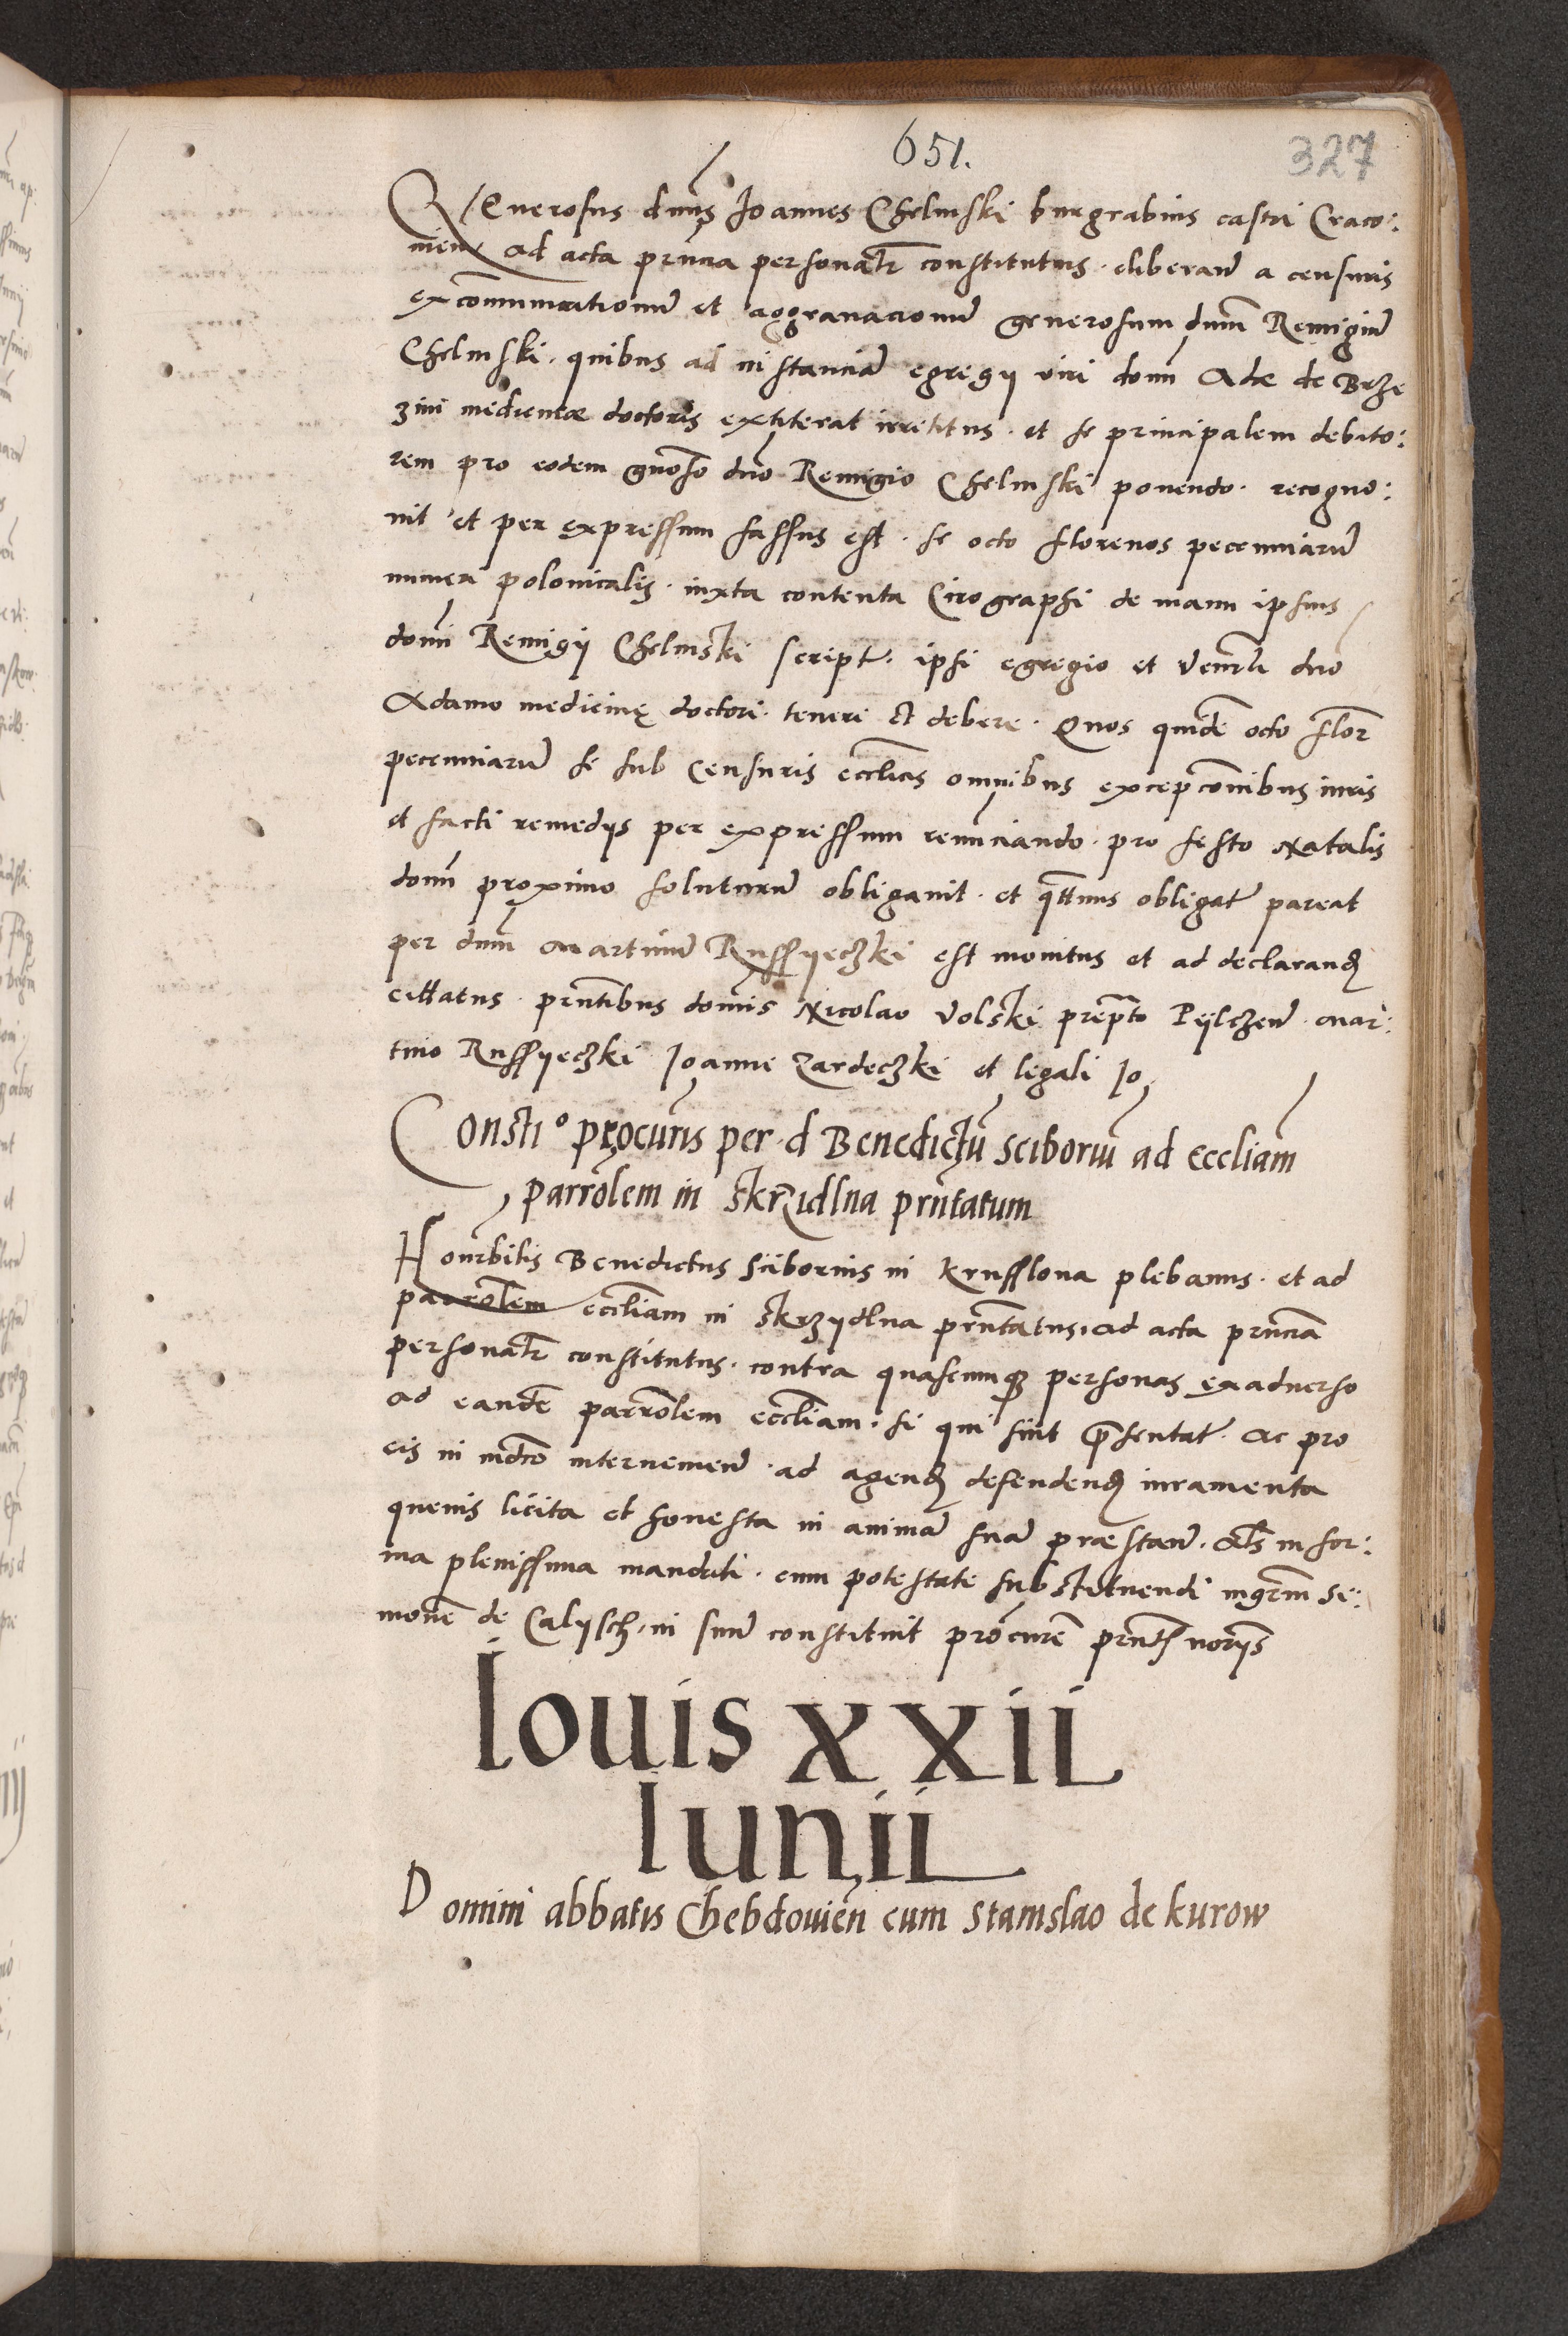 651.
327
GEnerosus dnus Ioannes Chelmski burgrabius castri Craco:
nien ad acta prncia personalr constitutus. eliberand a censuris
excommunicationum et aggravacionum generosum dnum Remigium
Chelmski. quibus ad instanciam egregij viri domi Adae de Brze
zini medicinae doctoris extiterat irretitus. et se principalem debito:
rem pro eodem gnoso dno Remigio Chelmski ponendo. recogno:
uit et per expressum fassus est. se octo florenos peccuniarum
numeri polonicalis. iuxta contenta Cirographi de manu ipsius
domi Remigij Chelmski script. ipsi egregio et Venerli dno
Adamo medicinę doctori. tenere et debere. Quos quidem octo flor
peccuniarum se sub Censuris ecclicis omnibus excepconibus iuris
et facti remedijs per expressum renunciando. pro festo Natalis
domi proximo soluturum obligauit. et quatenus obligat pareat
per dnum Martinum Russyeczki est monitus et ad declarand
cittatus. prntibus domis Nicolao Volski preprto Pijlczen. Mar:
tino Russyeczki Ioanne Zardeczki et legali Io
Constio procuris per d Benedictum Sciborium ad Eccliam
parrolem in Skrzidlna prntatum
Honrbilis Benedictus Sciborius in Krusslona plebanus. et ad
parrolem eccliam in Skrzydlna prntatus, ad acta prncia
personalr constitutus. contra quascunque personas exaduerso
ad eandem parrolem eccliam. si qui sint presentat. ac pro
eis in medio interuenien. ad agend defendend iuramenta
queuis licita et honesta in animam suam praestand. Als in for:
ma plenissima mandati. cum potestate substituendi mgrm Si:
monem de Calysch, in suum constituit procurem prntz noriis
Iouis XXII
Iunii
Domini abbatis Chebdouien cum Stanislao de Kurow